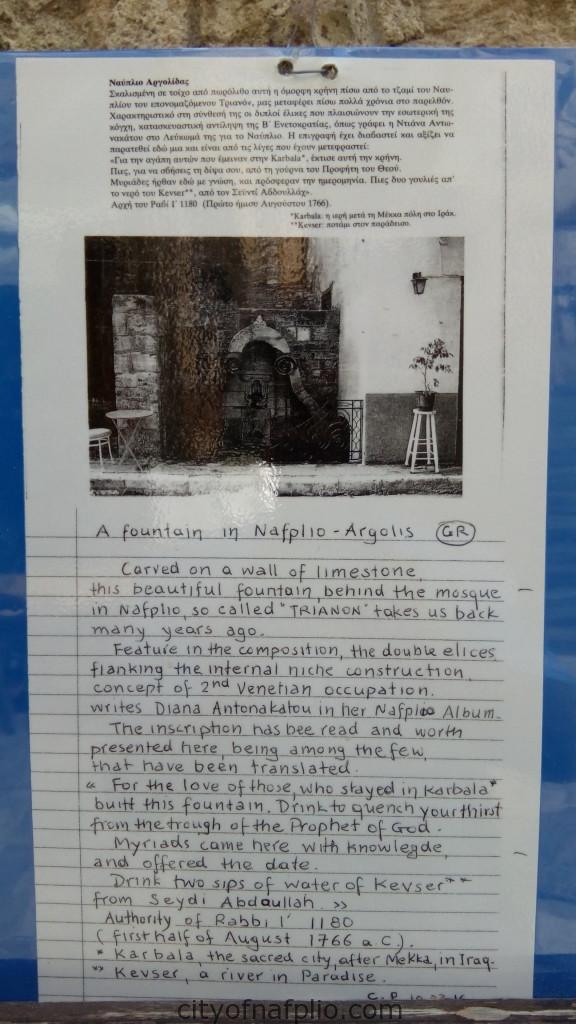 Ναύπλιο Αργολίδας
Σκαλισμένη σε τοίχο από πωρόλιθο αυτή η όμορφη κρήνη πίσω από το τζαμί του Ναυ-
πλίου του επονομαζόμενου Τριανόν, μας μεταφέρει πίσω πολλά χρόνια στο παρελθόν.
Χαρακτηριστικό στη σύνθεσή της οι διπλοί έλικες που πλαισιώνουν την εσωτερική της
κόγχη, κατασκευαστική αντίληψη της Β΄ Ενετοκρατίας, όπως γράφει η Ντιάνα Αντω-
νακάτου στο Λεύκωμά της για το Ναύπλιο. Η επιγραφή έχει διαβαστεί και αξίζει να
παρατεθεί εδώ μια και είναι από τις λίγες που έχουν μεταφραστεί:
«Για την αγάπη αυτών που έμειναν στην Karbala*, έκτισε αυτή την κρήνη.
Πιες, για να σβήσεις τη δίψα σου, από τη γούρνα του Προφήτη του Θεού.
Μυριάδες ήρθαν εδώ με γνώση, και πρόσφεραν την ημερομηνία. Πιες δυο γουλιές απ'
το νερό του Kevser**, από τον Σεϋντί Αβδουλλάχ».
Αρχή του Ραβί Ι΄ 1180 (Πρώτο ήμισυ Αυγούστου 1766).
*Karbala: η ιερή μετά τη Μέκκα πόλη στο Ιράκ.
**Kevser: ποτάμι στον παράδεισο.
A fountain in Nafplio - Argolis GR
Carved on a wall of limestone,
this beautiful fountain, behind the mosque
in Nafplio, so called "TRIANON" takes us back
many years ago.
Feature in the composition, the double elices
flanking the internal niche construction,
concept of 2nd Venetian occupation.
writes Diana Antonakatou in her Nafplio Album.
The inscription has bee read and worth
presented here, being among the few,
that have been translated.
« For the love of those, who stayed in Karbala*
built this fountain. Drink to quench your thirst
from the trough of the Prophet of God.
Myriads came here with knowlegde,
and offered the date.
Drink two sips of water of Kevser**
from Seydi Abdaullah. »
Authority of Rabbi I' 1180
(first half of August 1766 a.C.).
* Karbala, the sacred city, after Mekka, in Iraq.
** Kevser, a river in Paradise.
cityofnafplio.com